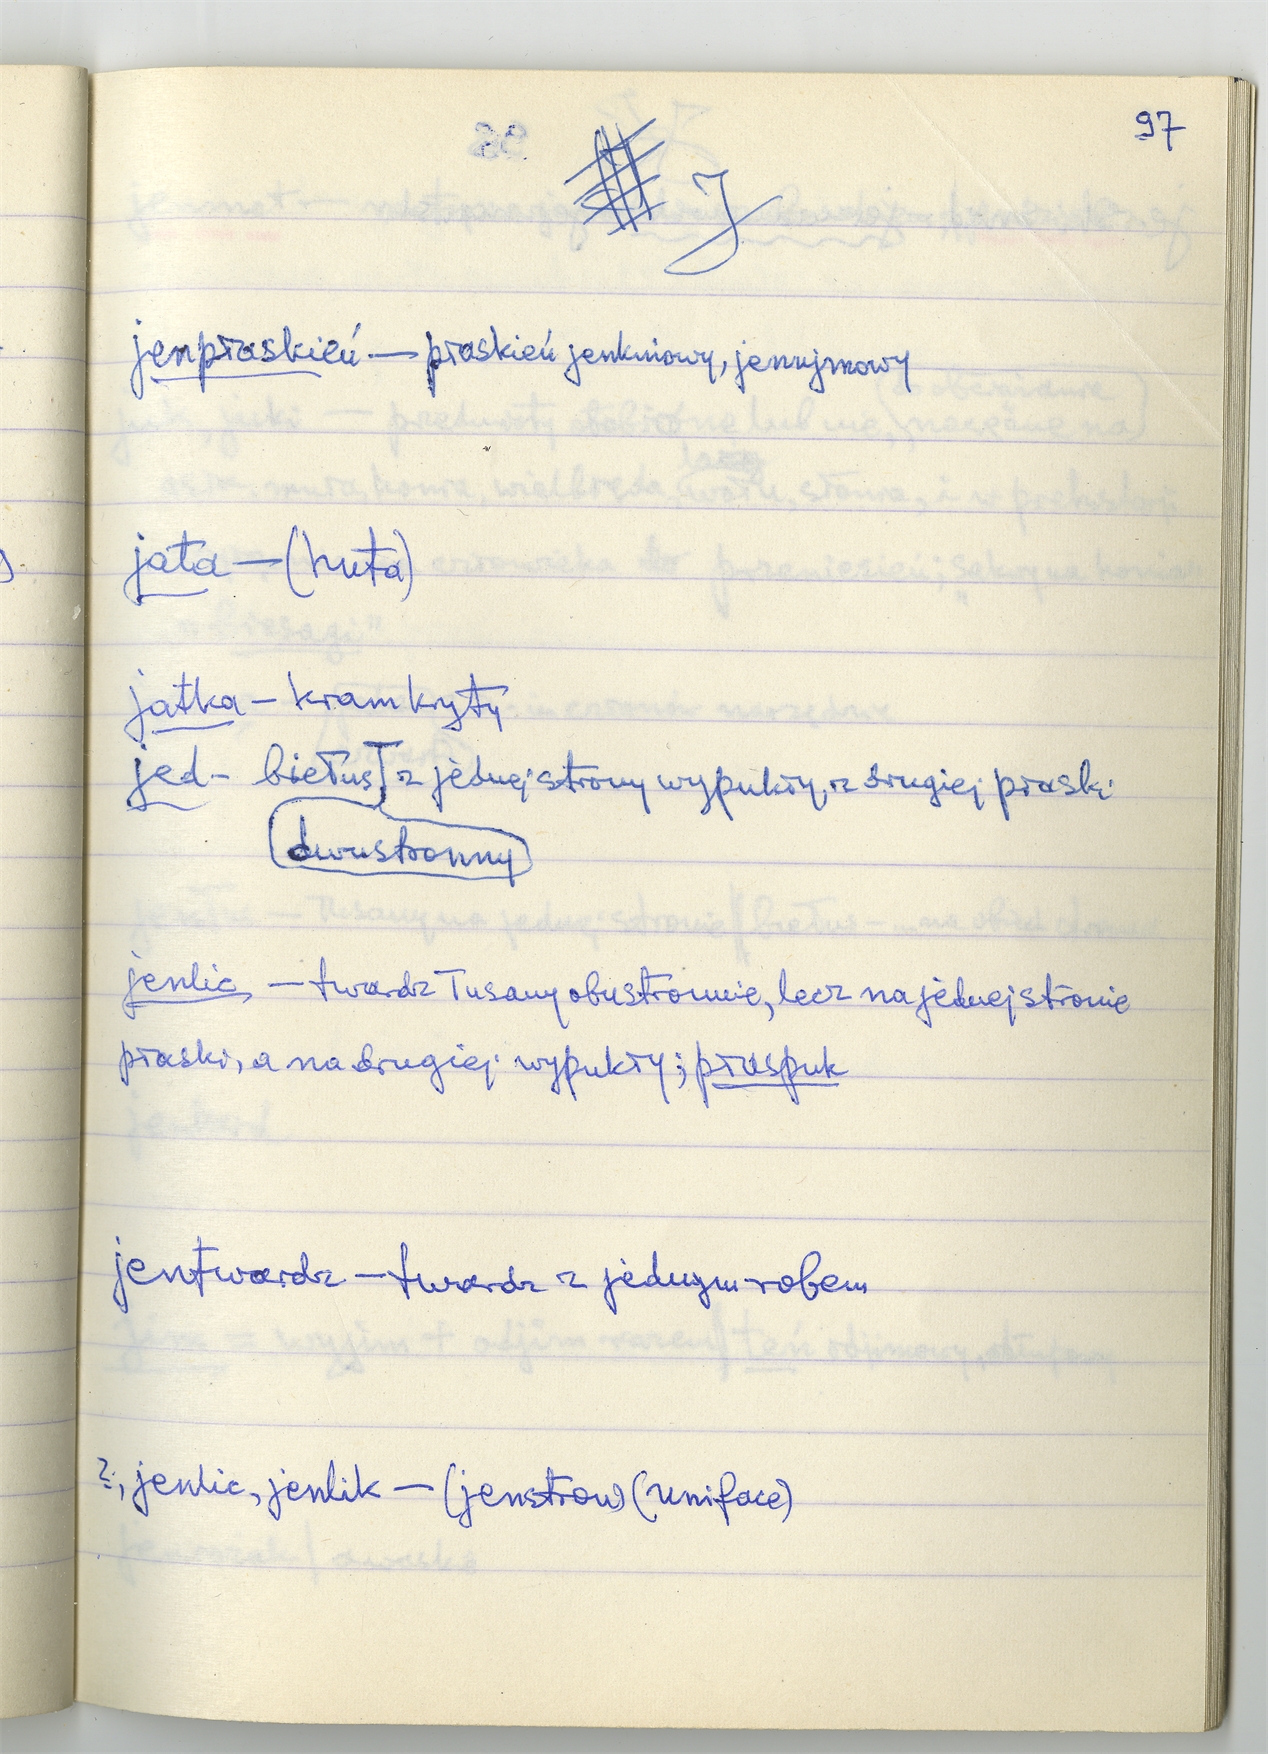 97
J
jenpłaskień — płaskień jenkniowy, jenujmowy
jata — (huta)
jatka — kram kryty
jed - biełus z jednej strony wypukły, z drugiej płaski
dwustronny
jenlic — twardz łusany obustronnie, lecz na jednej stronie
płaski, a na drugiej wypukły; płaspuk
jentwardz — twardz z jednym robem
?, jenlic, jenlik — (jenstron) (uniface)